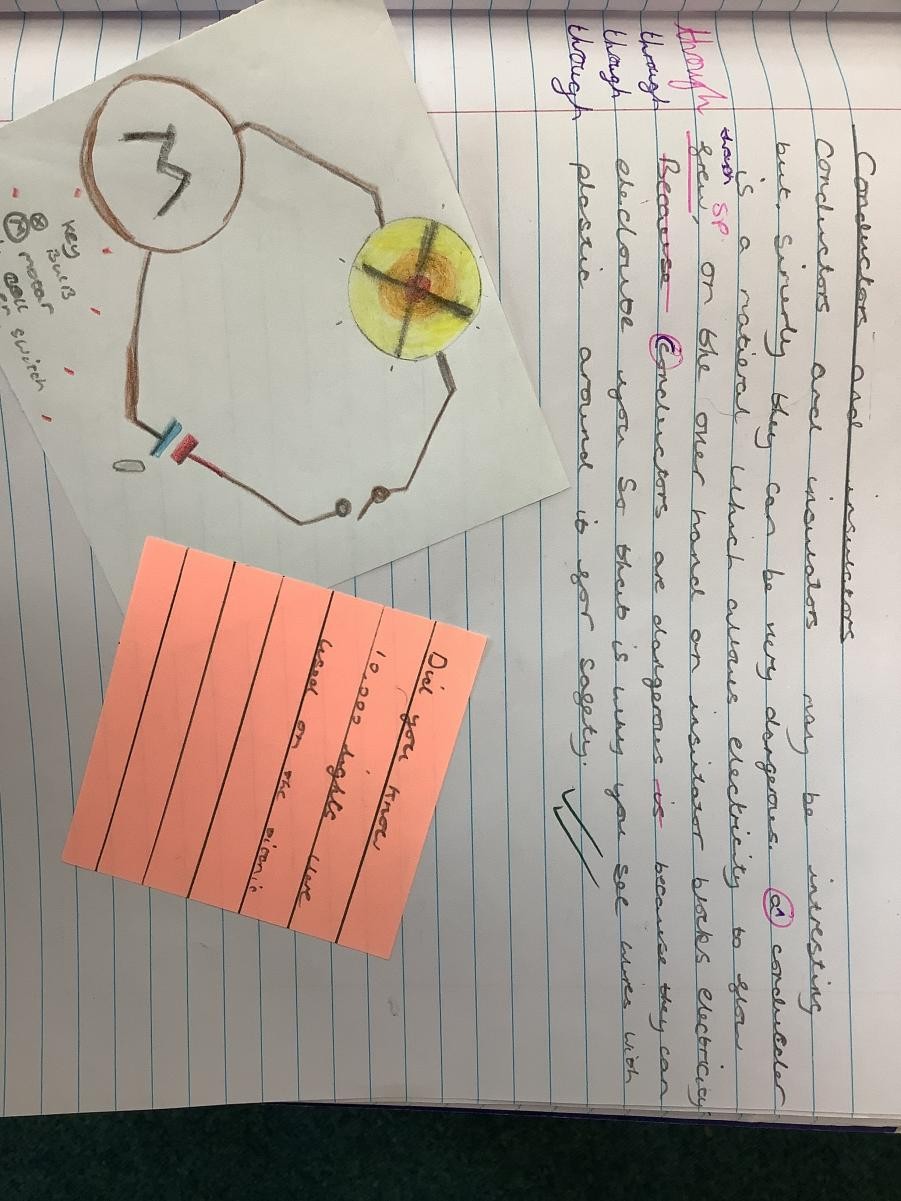 Conductors and insulators
Conductors and insulators may be intresting
but, simerly they can be very dangerous. a conducter
is a matieral which allows electricity to flow
thow sp. flew, on the oher hand an insitator blocks electricity.
Because Conductors are dangerous is because they can
electouite you so that is why you see wires with
plastic around it for safety.
though
through
though
though
M
key
BulB
M motor
cell
switch
Did you know
10,000 lights were
used on the titanic